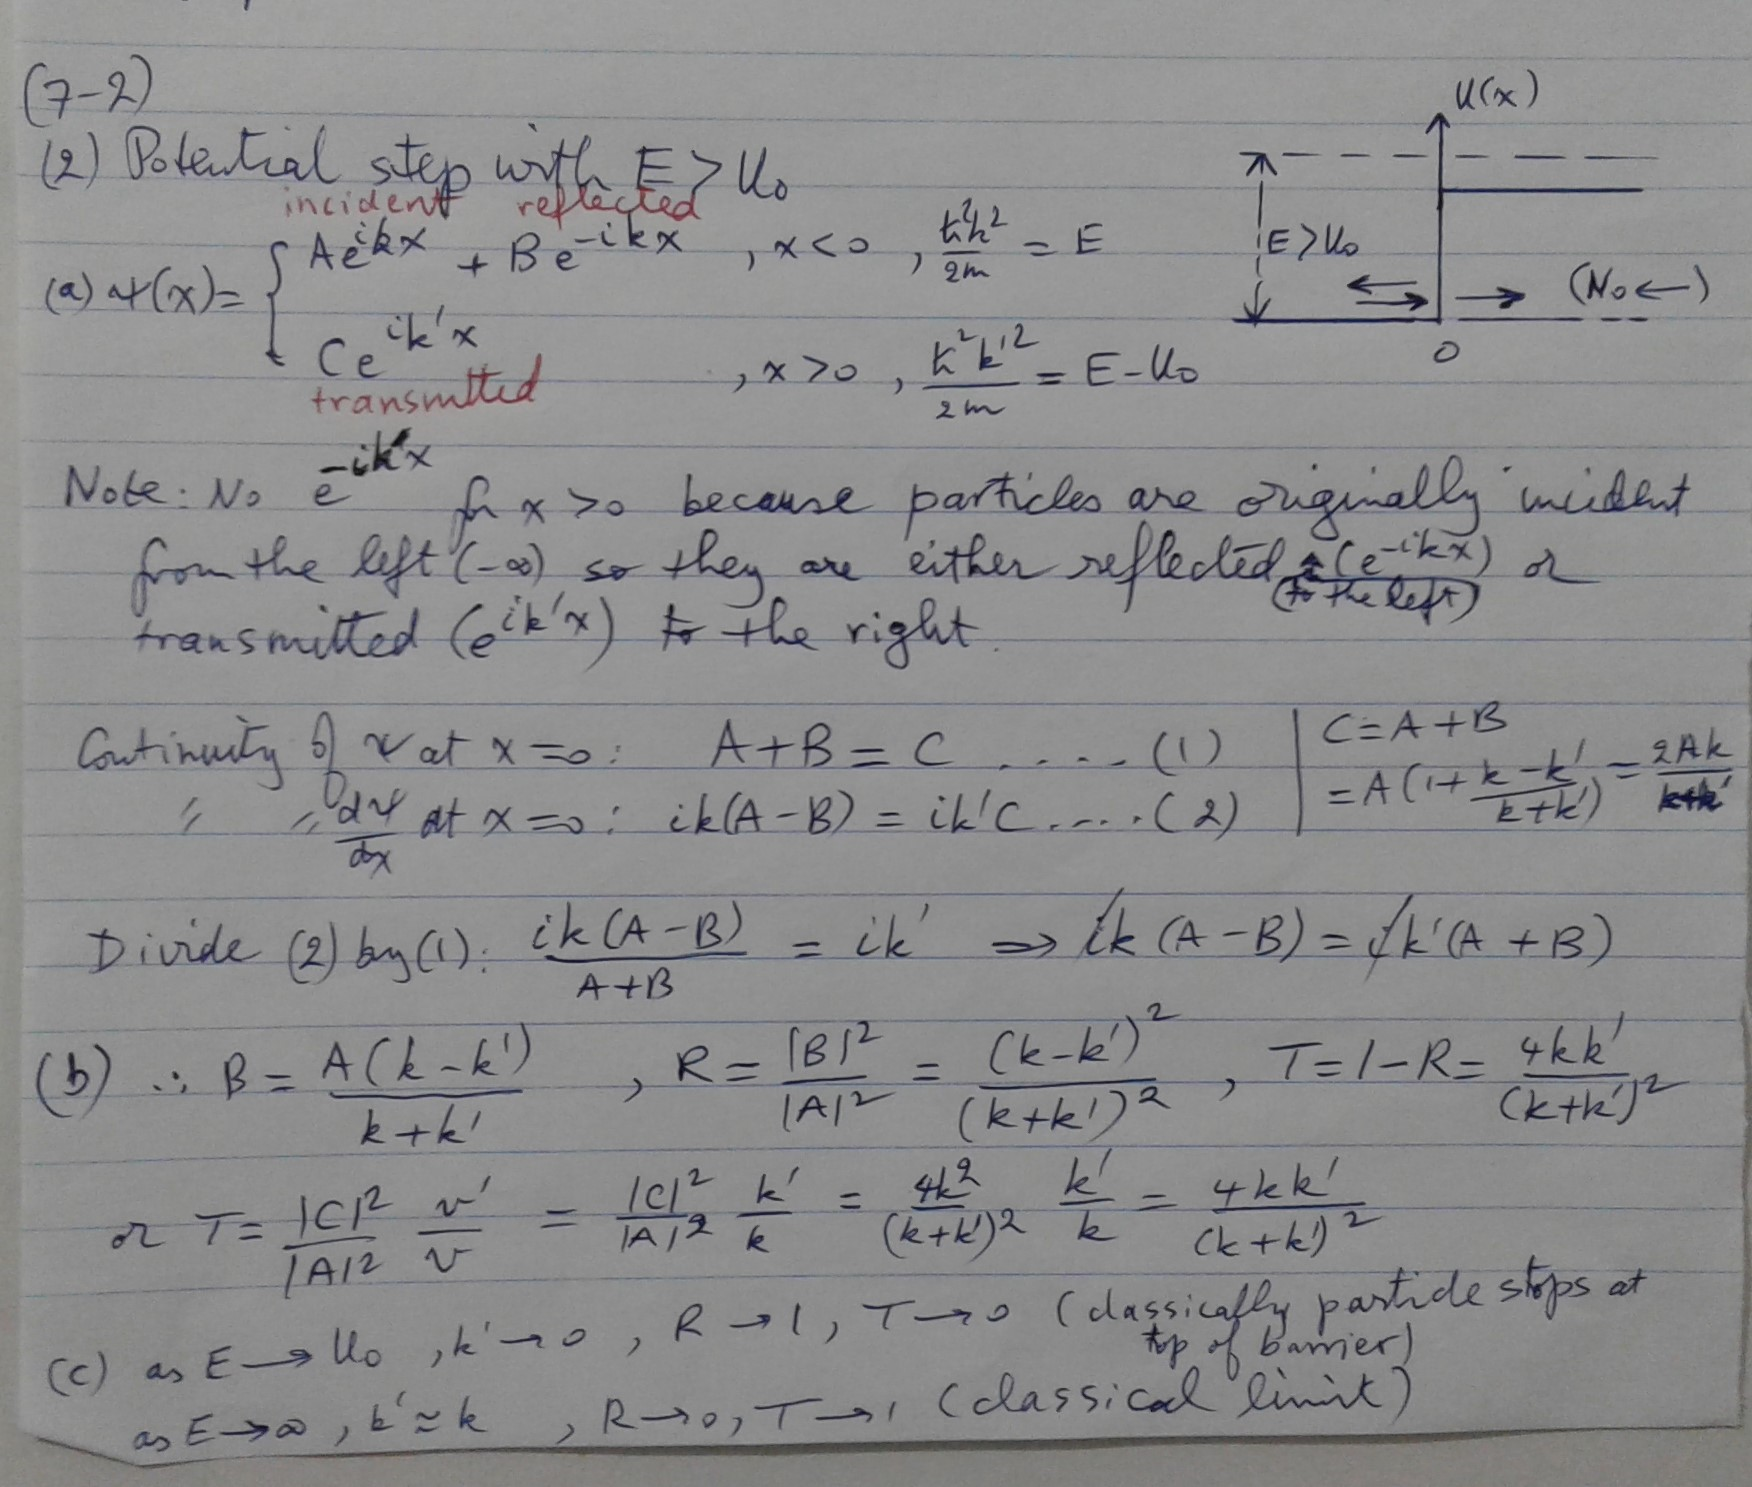 (7-2)
(2) Potential step with E > U₀
incident reflected
(a) ψ(x) = { Ae^{ikx} + Be^{-ikx} , x < 0 , ħ²k²/2m = E
Ce^{ik'x} , x > 0 , ħ²k'²/2m = E - U₀
transmitted
U(x)
E > U₀
(No ←)
0
Note: No e^{-ik'x} for x > 0 because particles are originally incident
from the left (-∞) so they are either reflected (e^{-ikx}) or
(to the left)
transmitted (e^{ik'x}) to the right.
Continuity of ψ at x = 0 : A + B = C ..... (1)
" " dψ/dx at x = 0 : ik(A - B) = ik'C .... (2)
C = A + B
= A(1 + (k - k')/(k + k')) = 2Ak/(k+k')
Divide (2) by (1): ik(A - B)/(A + B) = ik' ⇒ ik(A - B) = ik'(A + B)
(b) ∴ B = A(k - k')/(k + k') , R = |B|²/|A|² = (k - k')²/(k + k')² , T = 1 - R = 4kk'/(k + k')²
or T = |C|²/|A|² v'/v = |C|²/|A|² k'/k = 4k²/(k + k')² k'/k = 4kk'/(k + k')²
(c) as E → U₀ , k' → 0 , R → 1 , T → 0 (classically particle stops at
top of barrier)
as E → ∞ , k' ≃ k , R → 0 , T → 1 (classical limit)